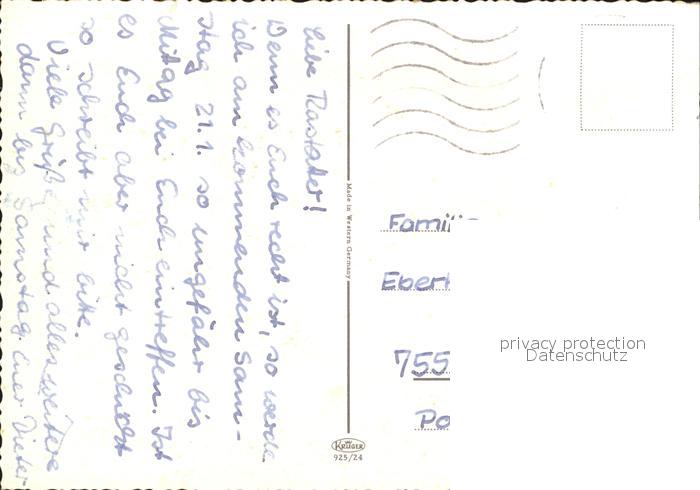 Liebe Rastatter!
Wenn es Euch recht ist, so werde
ich am kommenden Sam-
stag 21.1. so ungefähr bis
Mittag bei Euch eintreffen. Ist
es Euch aber nicht geschickt
so schreibt mir bitte.
Viele Grüße und alles weitere
dann bis Samstag. Euer Dieter
Made in Western Germany
KRÜGER
925/24
Famili
Eber
755
Po
privacy protection
Datenschutz